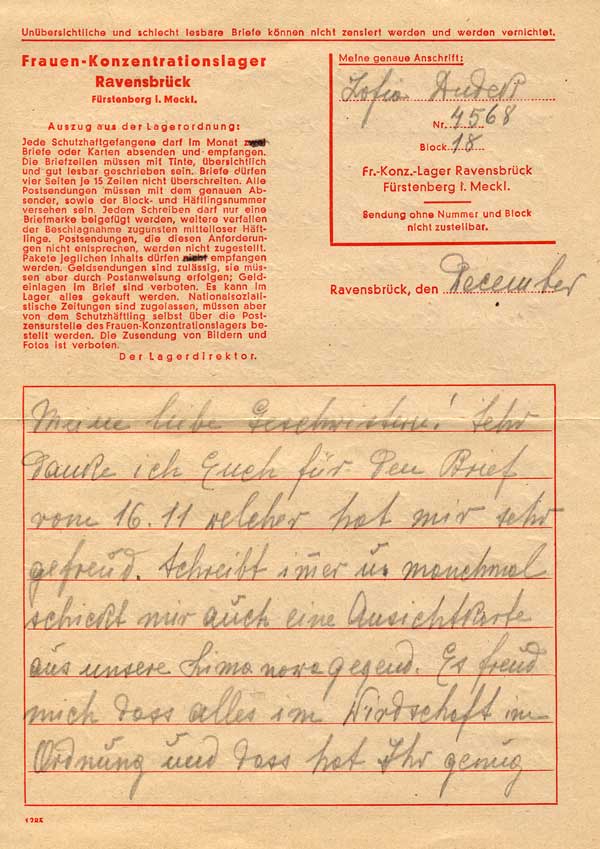 Unübersichtliche und schlecht lesbare Briefe können nicht zensiert werden und werden vernichtet.
Frauen-Konzentrationslager
Ravensbrück
Fürstenberg i. Meckl.
Auszug aus der Lagerordnung:
Jede Schutzhaftgefangene darf im Monat zwei
Briefe oder Karten absenden und empfangen.
Die Briefzeilen müssen mit Tinte, übersichtlich
und gut lesbar geschrieben sein. Briefe dürfen
vier Seiten je 15 Zeilen nicht überschreiten. Alle
Postsendungen müssen mit dem genauen Ab-
sender, sowie der Block- und Häftlingsnummer
versehen sein. Jedem Schreiben darf nur eine
Briefmarke beigefügt werden, weitere verfallen
der Beschlagnahme zugunsten mittelloser Häft-
linge. Postsendungen, die diesen Anforderun-
gen nicht entsprechen, werden nicht zugestellt.
Pakete jeglichen Inhalts dürfen nicht empfangen
werden. Geldsendungen sind zulässig, sie müs-
sen aber durch Postanweisung erfolgen; Geld-
einlagen im Brief sind verboten. Es kann im
Lager alles gekauft werden. Nationalsozialis-
tische Zeitungen sind zugelassen, müssen aber
von dem Schutzhäftling selbst über die Post-
zensurstelle des Frauen-Konzentrationslagers be-
stellt werden. Die Zusendung von Bildern und
Fotos ist verboten.
Der Lagerdirektor.
Meine genaue Anschrift:
Zofia Dudek
Nr. 4568
Block 18
Fr.-Konz.-Lager Ravensbrück
Fürstenberg i. Meckl.
Sendung ohne Nummer und Block
nicht zustellbar.
Ravensbrück, den December
Meine liebe Geschwistern! Sehr
danke ich Euch für den Brief
vom 16.11 welcher hat mir sehr
gefreud. Schreibt imer u. manchmal
schickt mir auch eine Ansichtkarte
aus unsere Limanowa gegend. Es freud
mich dass alles im Wirdschaft in
Ordnung und dass hat Ihr genug
1285